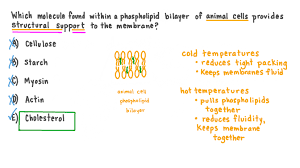 Which molecule found within a phospholipid bilayer of animal cells provides
structural support to the membrane?
A) Cellulose
B) Starch
C) Myosin
D) Actin
E) Cholesterol
animal cell
phospholipid
bilayer
cold temperatures
• reduces tight packing
• keeps membranes fluid
hot temperatures
• pulls phospholipids
together
• reduces fluidity,
keeps membrane
together